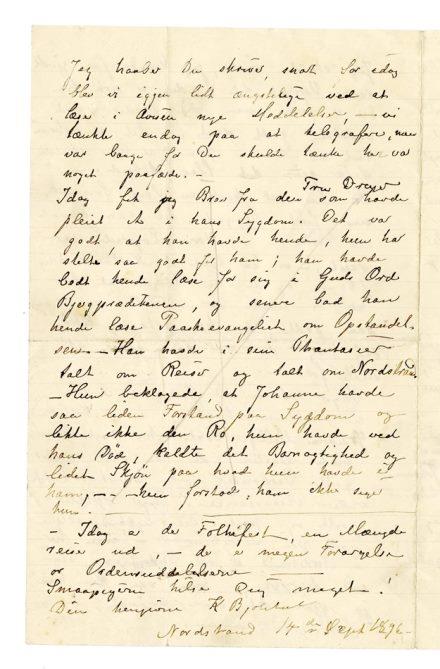 Jeg haaber Du skriver, snart for idag
blev vi igjen lidt ængstelige ved at
læse i Avisen nye Meddelelser, — vi
tænkte endog paa at telegrafere, men
var bange for Du skulde tænke her var
noget paafærde. —
Fru Dreyer
Idag fik jeg Brev fra den som havde
pleiet A i hans Sygdom. Det var
godt, at han havde hende, hun har
stelt saa godt for ham; han havde
bedt hende læse for sig i Guds Ord
Bjergprædikenen, og senere bad han
hende læse Paaskeevangeliet om Opstandel
sen. — Han havde i sine Phantasier
talt om Reiser og talt om Nordstrand.
— Hun beklagede, at Johanne havde
saa liden Forstand paa Sygdom og
ikke den Ro, hun havde ved
hans Død, kaldte det Barnagtighed og
lidet Skjøn paa hvad hun havde i
ham, — — hun forstod ham ikke siger
hun.
— Idag er de Folkefest, en Mængde
reise ud, — de e megen Forargelse
Ordensuddelelserne
Smaapigerne hilse Dig meget!
Din hengivne K
Nordstrand 14de Sept 1896 —